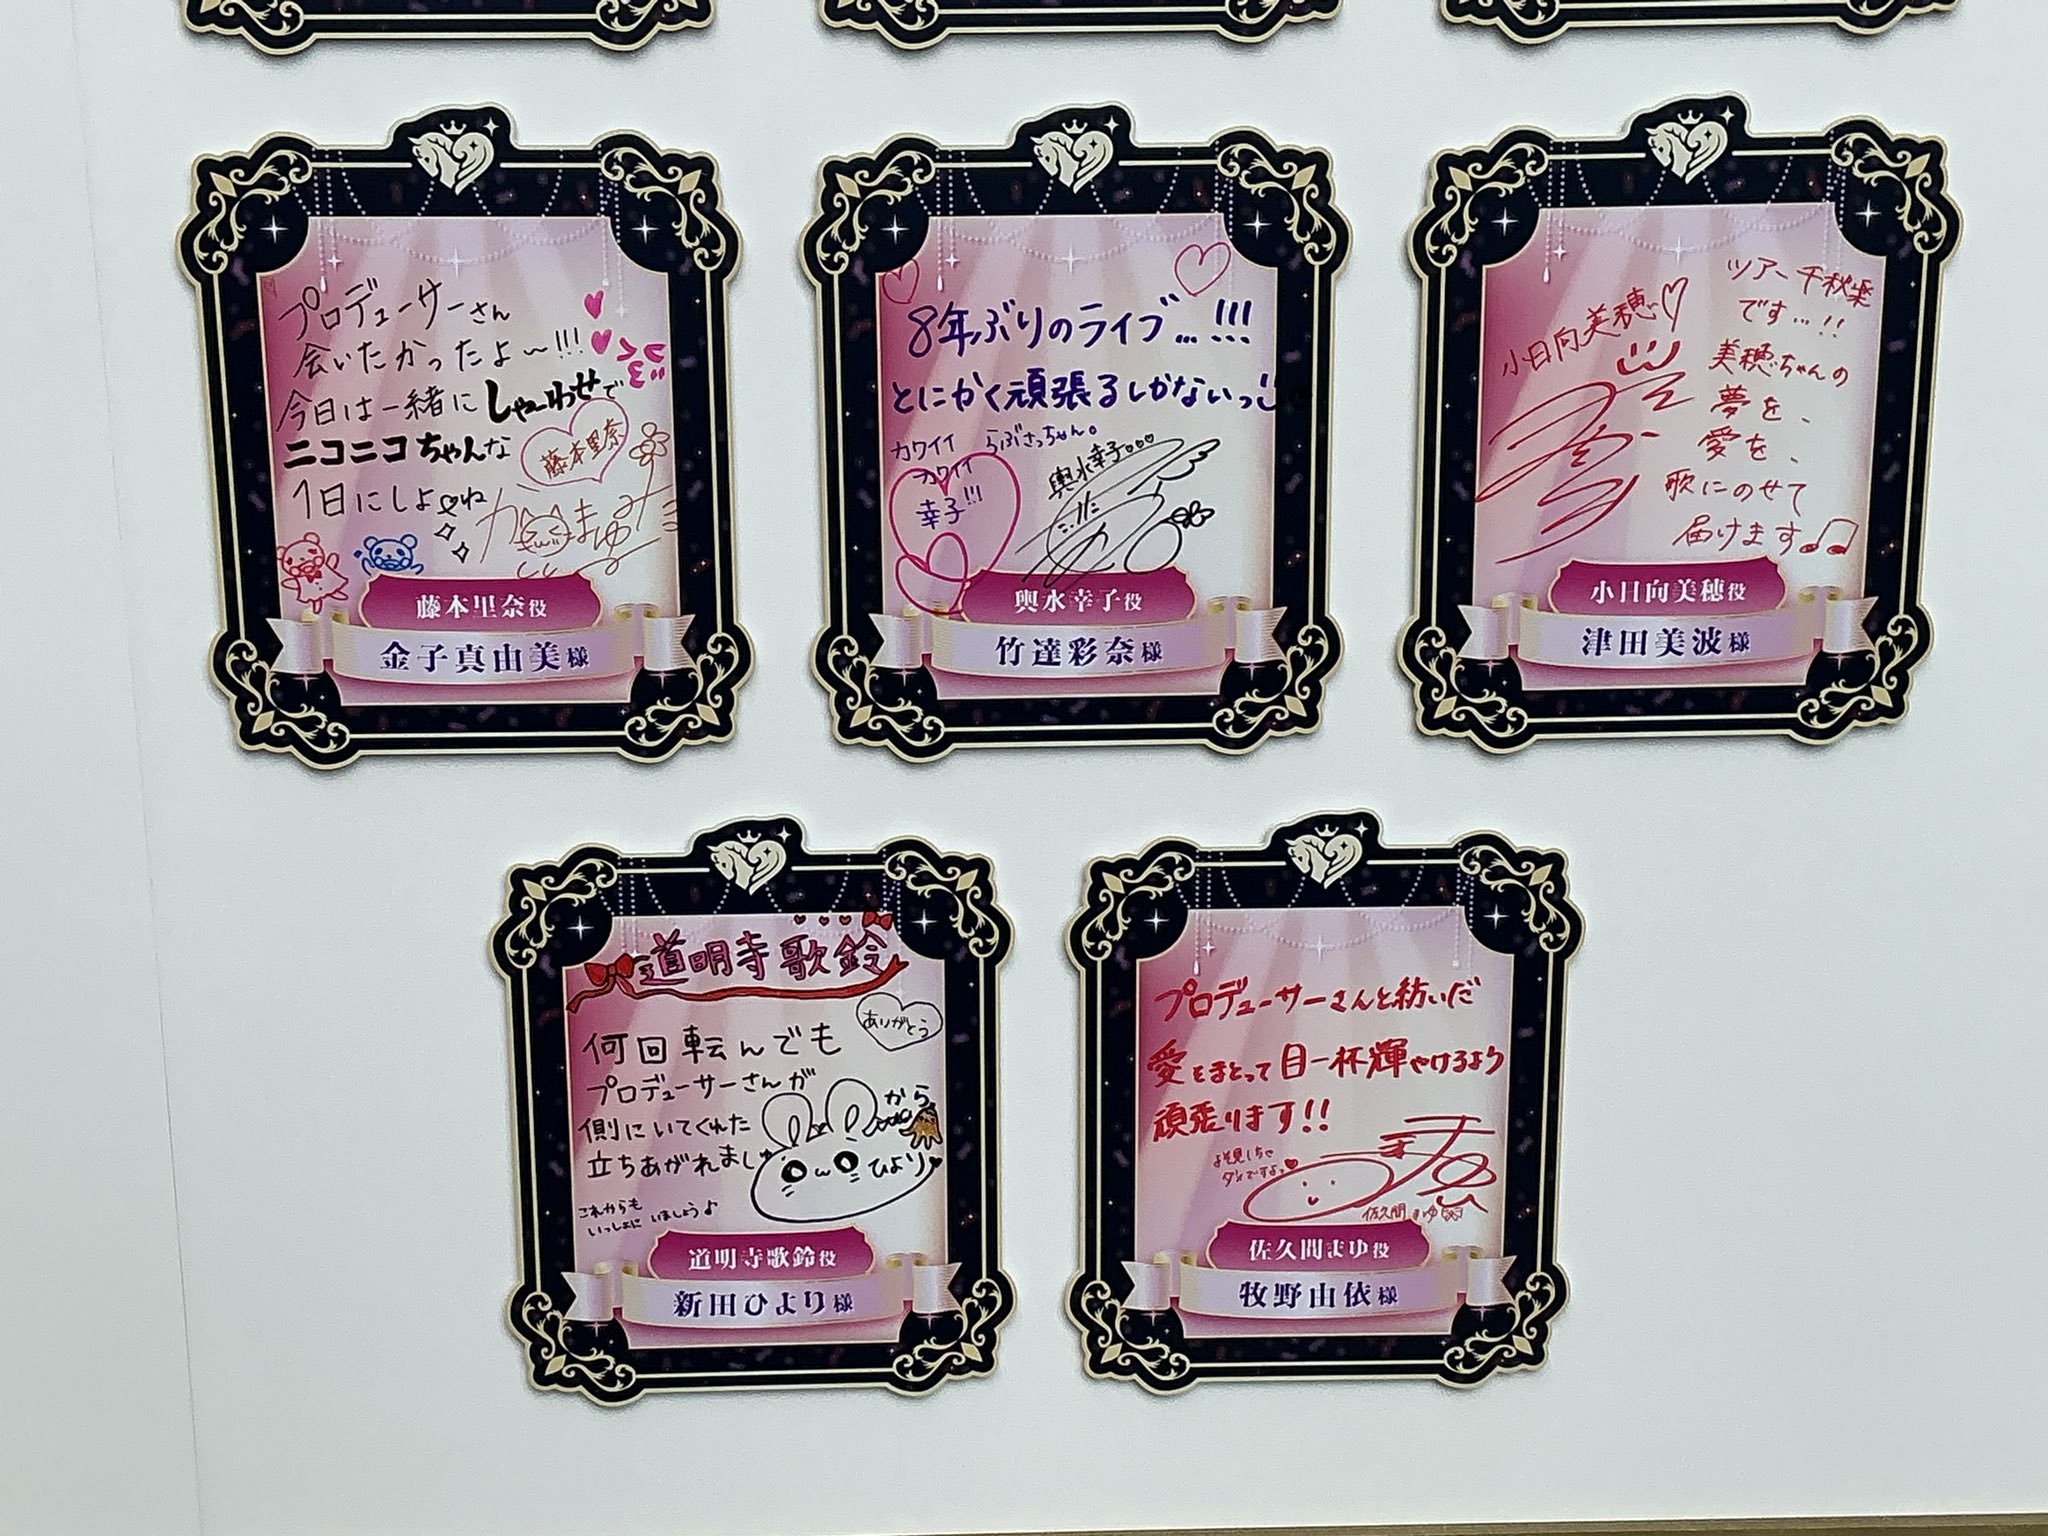 プロデューサーさん
会いたかったよ〜!!!
今日は一緒にしゃーわせで
ニコニコちゃんな
1日にしよね
藤本里奈
かねこまゆみ
藤本里奈役
金子真由美様
8年ぶりのライブ…!!!
とにかく頑張るしかないっ
カワイイ
カワイイ
幸子!!!
らぶさっちゃん。
輿水幸子
輿水幸子役
竹達彩奈様
小日向美穂
ツアー千秋楽
です…!!
美穂ちゃんの
夢を、
愛を、
歌にのせて
届けます
小日向美穂役
津田美波様
道明寺歌鈴
ありがとう
何回転んでも
プロデューサーさんが
側にいてくれたから
立ちあがれましゅ
ひより
これからも
いっしょにいましょうよ
道明寺歌鈴役
新田ひより様
プロデューサーさんと紡いだ
愛をまとって目一杯輝やけるよう
頑張ります!!
よそ見しちゃ
ダメですよ
佐久間まゆ
佐久間まゆ役
牧野由依様